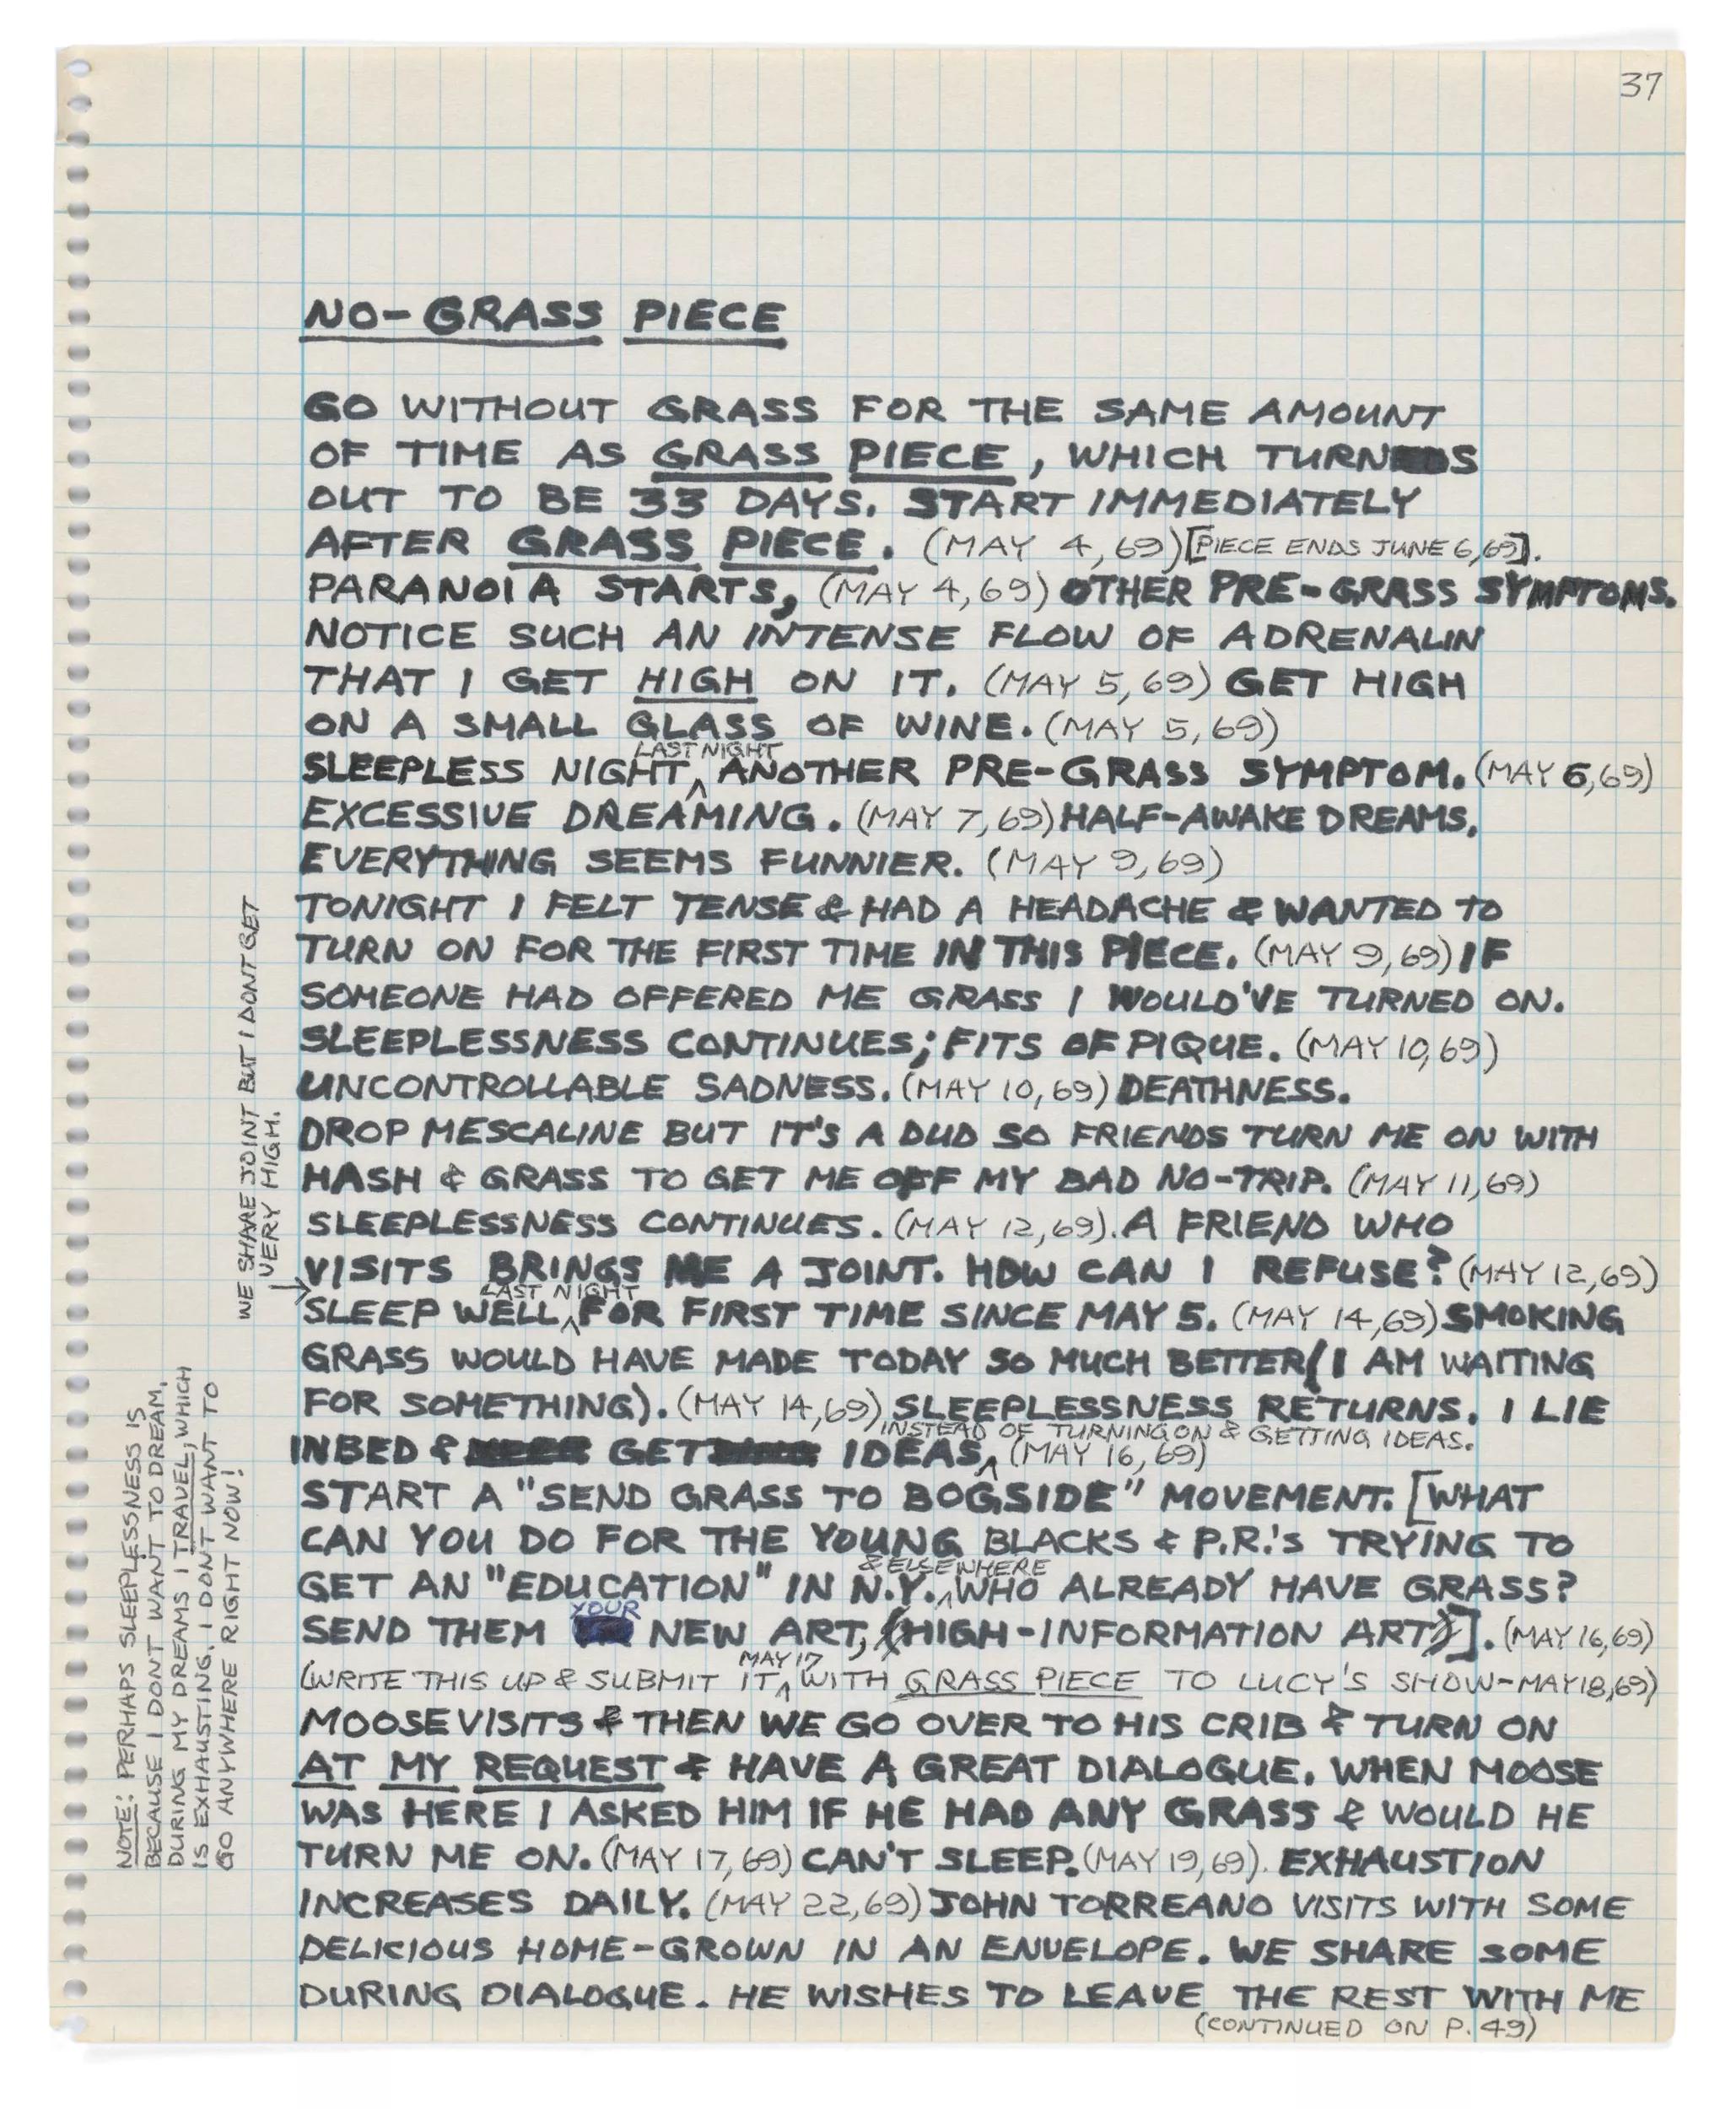 37
NO-GRASS PIECE
GO WITHOUT GRASS FOR THE SAME AMOUNT
OF TIME AS GRASS PIECE, WHICH TURNS
OUT TO BE 33 DAYS. START IMMEDIATELY
AFTER GRASS PIECE. (MAY 4, 69) [PIECE ENDS JUNE 6, 69].
PARANOIA STARTS, (MAY 4, 69) OTHER PRE-GRASS SYMPTOMS.
NOTICE SUCH AN INTENSE FLOW OF ADRENALIN
THAT I GET HIGH ON IT. (MAY 5, 69) GET HIGH
ON A SMALL GLASS OF WINE. (MAY 5, 69)
LAST NIGHT
SLEEPLESS NIGHT, ^ ANOTHER PRE-GRASS SYMPTOM. (MAY 6, 69)
EXCESSIVE DREAMING. (MAY 7, 69) HALF-AWAKE DREAMS.
EVERYTHING SEEMS FUNNIER. (MAY 9, 69)
TONIGHT I FELT TENSE & HAD A HEADACHE & WANTED TO
TURN ON FOR THE FIRST TIME IN THIS PIECE. (MAY 9, 69) IF
SOMEONE HAD OFFERED ME GRASS I WOULD'VE TURNED ON.
SLEEPLESSNESS CONTINUES; FITS OF PIQUE. (MAY 10, 69)
UNCONTROLLABLE SADNESS. (MAY 10, 69) DEATHNESS.
DROP MESCALINE BUT IT'S A DUD SO FRIENDS TURN ME ON WITH
HASH & GRASS TO GET ME OFF MY BAD NO-TRIP. (MAY 11, 69)
SLEEPLESSNESS CONTINUES. (MAY 12, 69). A FRIEND WHO
VISITS BRINGS ME A JOINT. HOW CAN I REFUSE? (MAY 12, 69)
WE SHARE JOINT BUT I DONT GET
VERY HIGH.
LAST NIGHT
SLEEP WELL, ^ FOR FIRST TIME SINCE MAY 5. (MAY 14, 69) SMOKING
GRASS WOULD HAVE MADE TODAY SO MUCH BETTER (I AM WAITING
FOR SOMETHING). (MAY 14, 69) SLEEPLESSNESS RETURNS. I LIE
INSTEAD OF TURNING ON & GETTING IDEAS.
IN BED & GET IDEAS, ^ (MAY 16, 69)
START A "SEND GRASS TO BOGSIDE" MOVEMENT. [WHAT
CAN YOU DO FOR THE YOUNG BLACKS & P.R.'S TRYING TO
& ELSEWHERE
GET AN "EDUCATION" IN N.Y. ^ WHO ALREADY HAVE GRASS?
YOUR
SEND THEM NEW ART, (HIGH-INFORMATION ART)]. (MAY 16, 69)
MAY 17
(WRITE THIS UP & SUBMIT IT ^ WITH GRASS PIECE TO LUCY'S SHOW-MAY 18, 69)
MOOSE VISITS & THEN WE GO OVER TO HIS CRIB & TURN ON
AT MY REQUEST & HAVE A GREAT DIALOGUE. WHEN MOOSE
WAS HERE I ASKED HIM IF HE HAD ANY GRASS & WOULD HE
TURN ME ON. (MAY 17, 69) CAN'T SLEEP. (MAY 19, 69). EXHAUSTION
INCREASES DAILY. (MAY 22, 69) JOHN TORREANO VISITS WITH SOME
DELICIOUS HOME-GROWN IN AN ENVELOPE. WE SHARE SOME
DURING DIALOGUE. HE WISHES TO LEAVE THE REST WITH ME
(CONTINUED ON P. 49)
NOTE: PERHAPS SLEEPLESSNESS IS
BECAUSE I DONT WANT TO DREAM,
DURING MY DREAMS I TRAVEL, WHICH
IS EXHAUSTING. I DON'T WANT TO
GO ANYWHERE RIGHT NOW!